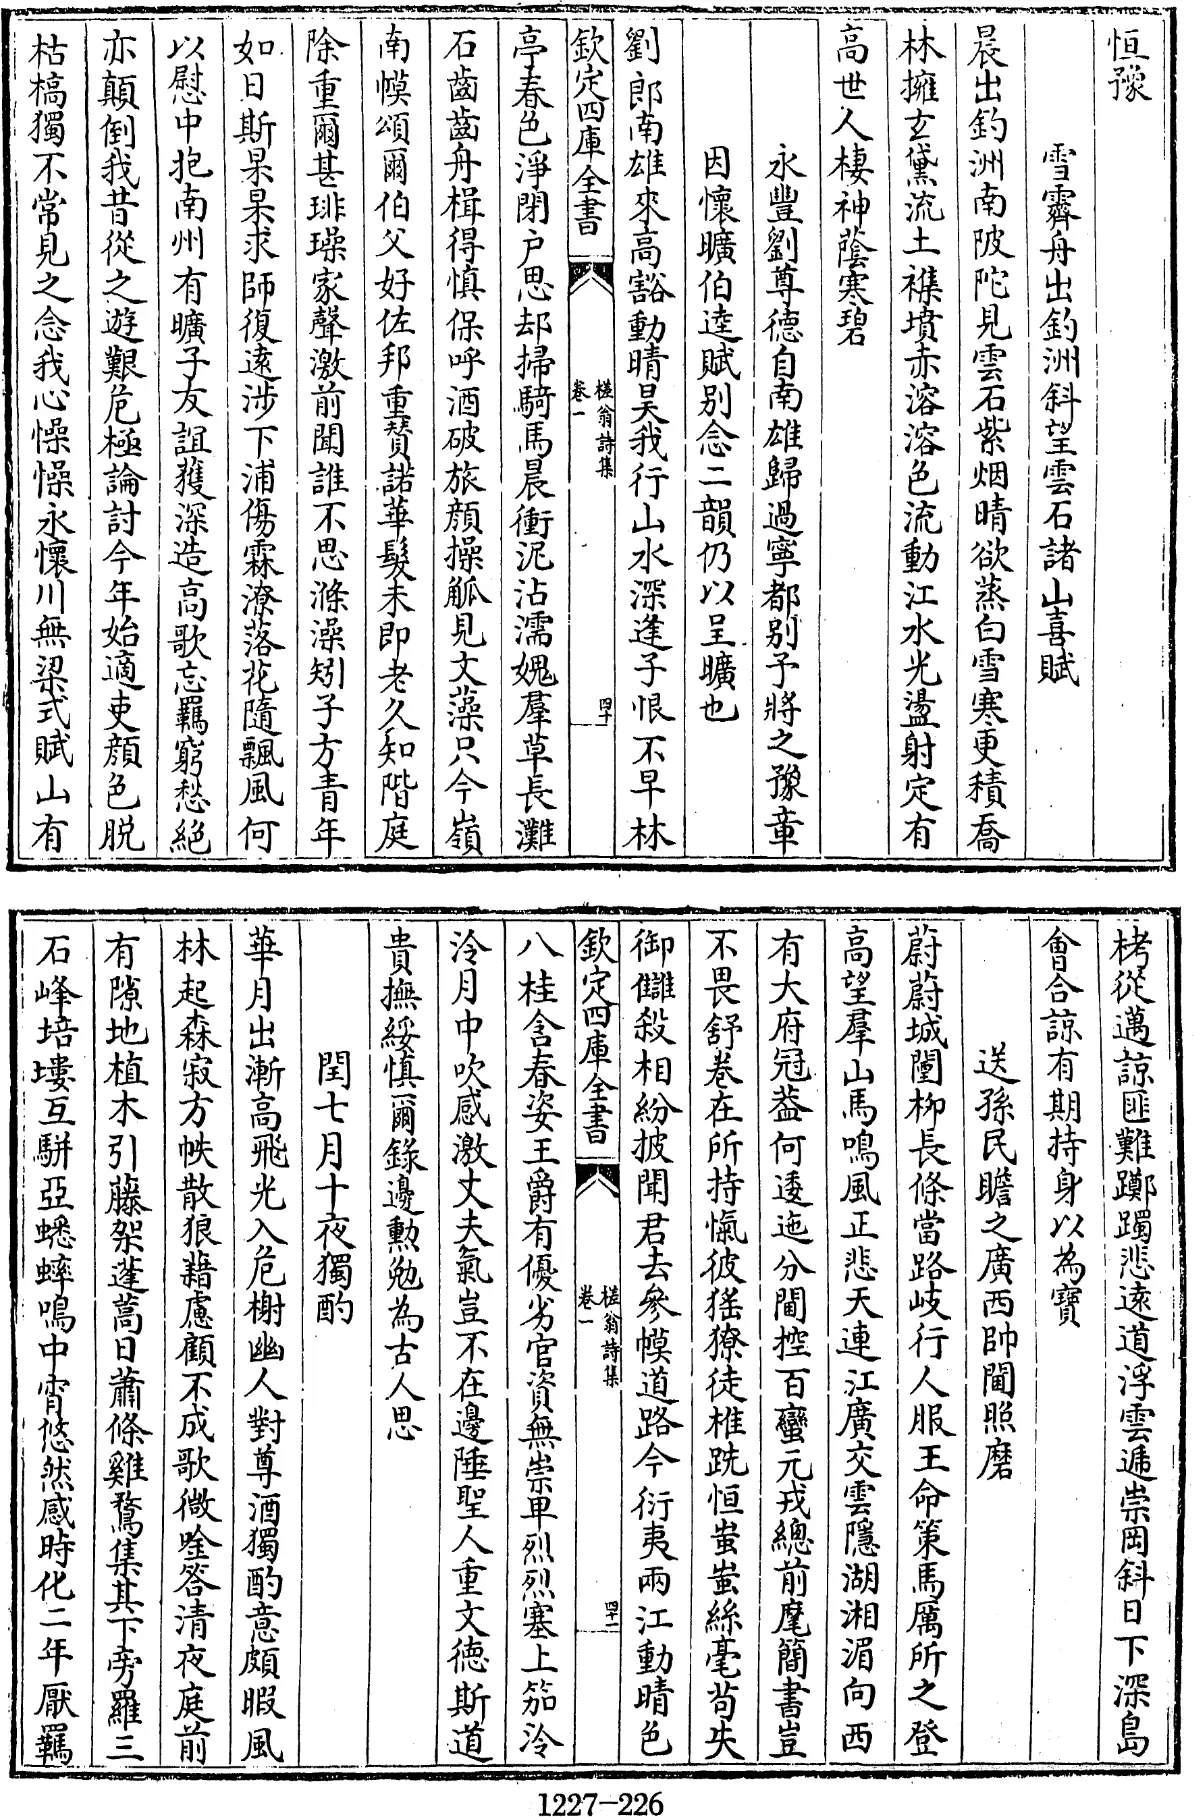 恒豫
雪霽舟出釣洲斜望雲石諸山喜賦
晨出釣洲南陂陀見雲石紫烟晴欲蒸白雪寒更積喬
林擁玄黛流土襍墳赤溶溶色流動江水光盪射定有
高世人棲神蔭寒碧
永豐劉尊德自南雄歸過寧都别予將之豫章
因懷曠伯逵賦别念二韻仍以呈曠也
劉郎南雄來高豁動晴昊我行山水深逢子恨不早林
欽定四庫全書
槎翁詩集
卷一
四十
亭春色淨閉户思却掃騎馬晨衝泥沾濡媿羣草長灘
石齒齒舟楫得慎保呼酒破旅顔操觚見文藻只今嶺
南幙頌爾伯父好佐邦重賛諾華髮未即老久知階庭
除重爾甚琲璪家聲激前聞誰不思滌澡矧子方青年
如日斯杲杲求師復遠涉下浦傷霖潦落花隨飄風何
以慰中抱南州有曠子友誼獲深造高歌忘羈窮愁絕
亦顛倒我昔從之遊艱危極論討今年始適吏顔色脱
枯槁獨不常見之念我心懆懆永懷川無梁式賦山有
栲從邁諒匪難躑躅悲遠道浮雲遞崇岡斜日下深島
會合諒有期持身以為寶
送孫民瞻之廣西帥閫照磨
蔚蔚城闉栁長條當路岐行人服王命策馬厲所之登
高望羣山馬鳴風正悲天連江廣交雲隱湖湘湄向西
有大府冠葢何逶迤分閫控百蠻元戎總前麾簡書豈
不畏舒卷在所持愾彼猺獠徒椎跣恒蚩蚩絲毫茍失
御讎殺相紛披聞君去參幙道路今衍夷兩江動晴色
欽定四庫全書
槎翁詩集
卷一
四十一
八桂含春姿王爵有優劣官資無崇卑烈烈塞上笳泠
泠月中吹感激丈夫氣豈不在邊陲聖人重文徳斯道
貴撫綏慎爾錄邊勲勉為古人思
閏七月十夜獨酌
華月出漸高飛光入危榭幽人對尊酒獨酌意頗暇風
林起森寂方帙散狼藉慮顧不成歌微唫答清夜庭前
有隙地植木引藤架蓬蒿日蕭條雞鶩集其下旁羅三
石峰培塿互駢亞蟋蟀鳴中宵悠然感時化二年厭羈
1227-226